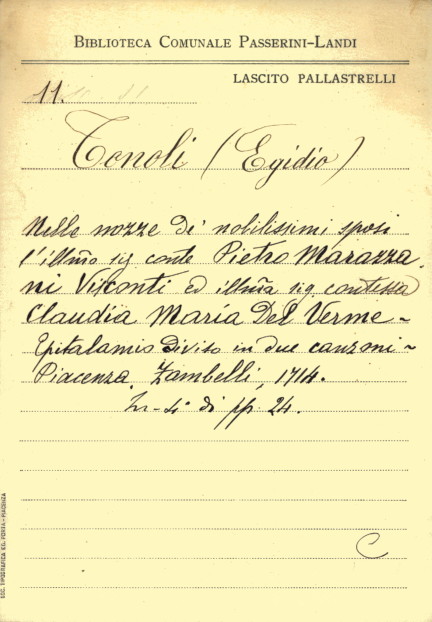 BIBLIOTECA COMUNALE PASSERINI-LANDI
LASCITO PALLASTRELLI
11.
Tonoli (Egidio)
Nelle nozze de' nobilissimi sposi
l'illm̃o sig conte Pietro Marazza-
ni Visconti ed illm̃a sig contessa
Claudia Maria Del Verme -
Epitalamio diviso in due canzoni -
Piacenza. Zambelli, 1714.
In-4° di pp. 24.
C
SOC. TIPOGRAFICA ED. PORTA-PIACENZA